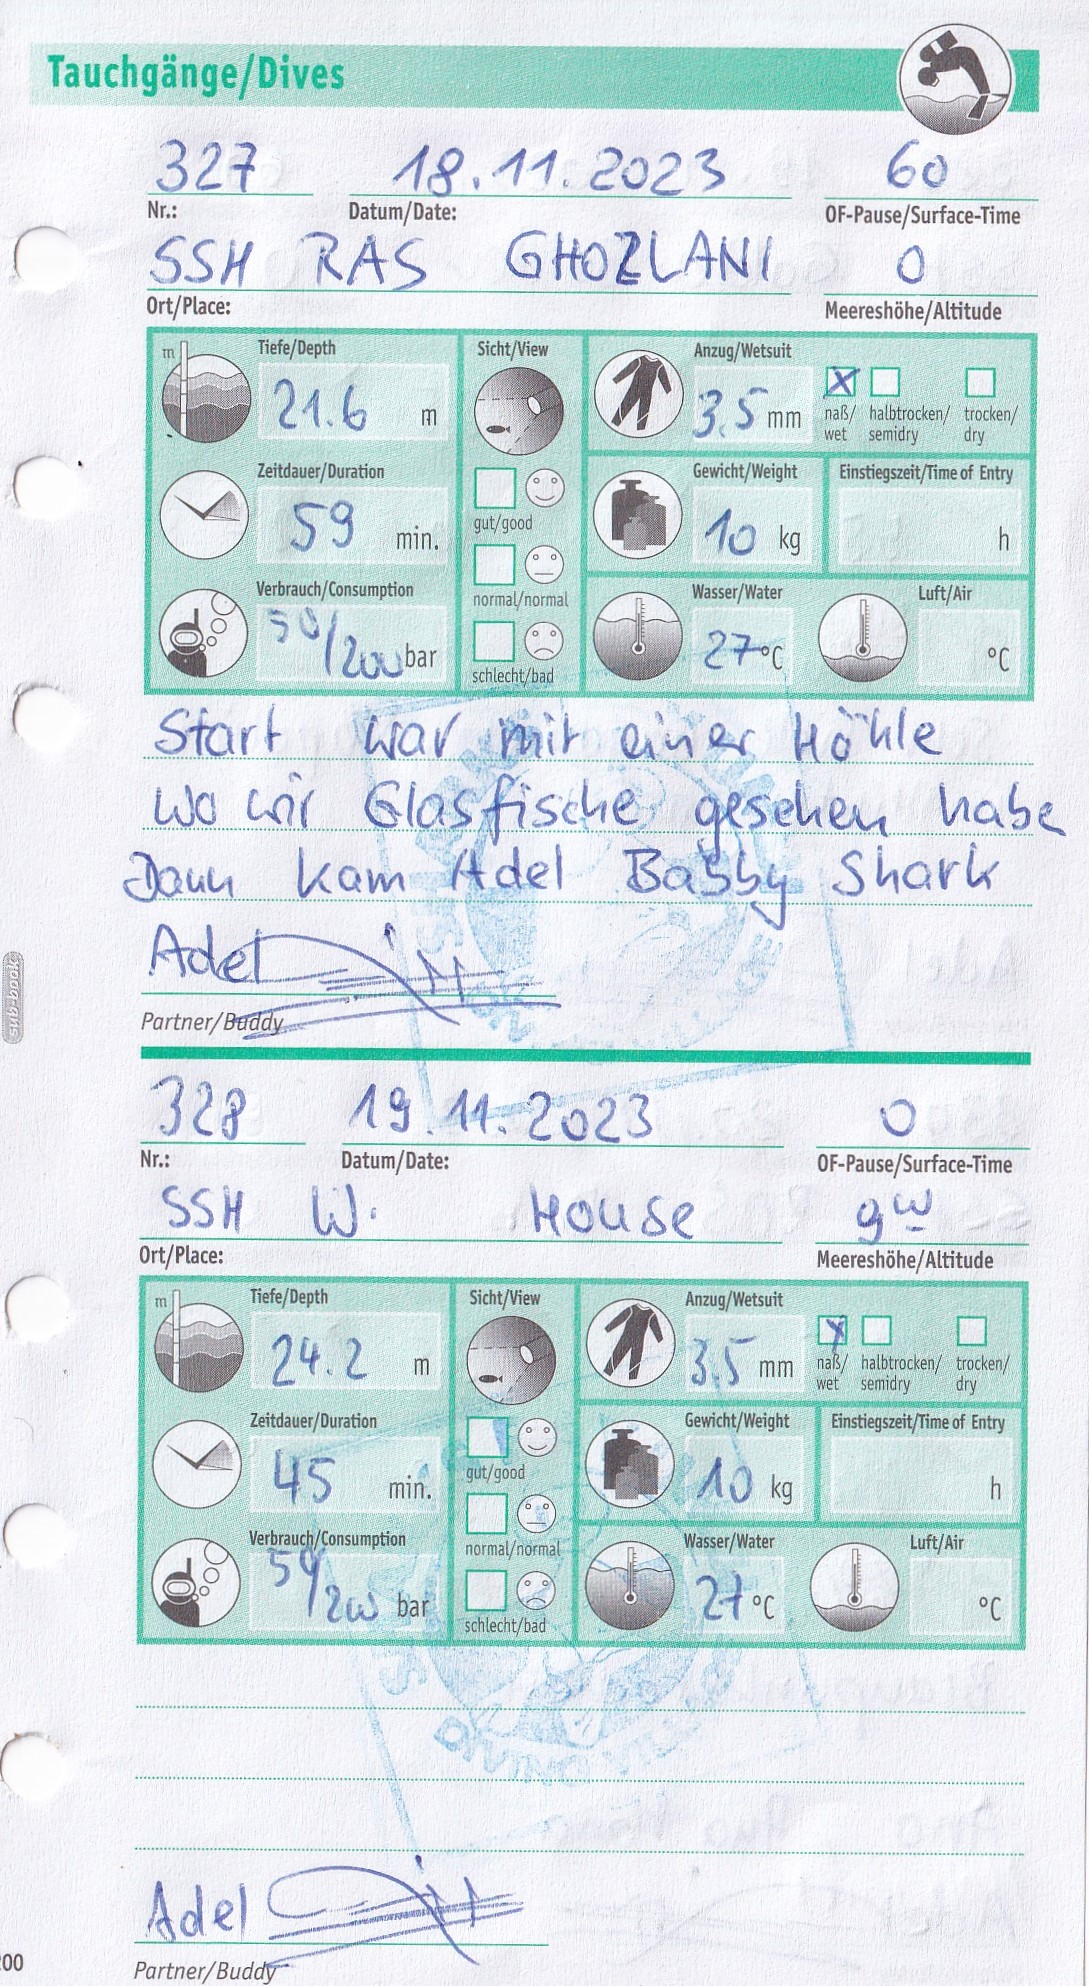 Tauchgänge/Dives
327 18.11.2023 60
Nr.: Datum/Date: OF-Pause/Surface-Time
SSH RAS GHOZLANI 0
Ort/Place: Meereshöhe/Altitude
m Tiefe/Depth Sicht/View Anzug/Wetsuit
21.6 m 3,5 mm x
naß/ halbtrocken/ trocken/
wet semidry dry
Zeitdauer/Duration Gewicht/Weight Einstiegszeit/Time of Entry
59 min. gut/good 10 kg h
Verbrauch/Consumption normal/normal Wasser/Water Luft/Air
50/200 bar 27 °C °C
schlecht/bad
Start war mit einer Höhle
wo wir Glasfische gesehen habe
Dann kam Adel Babby Shark
Adel
Partner/Buddy
sub-book
328 19.11.2023 0
Nr.: Datum/Date: OF-Pause/Surface-Time
SSH W. House
Ort/Place: Meereshöhe/Altitude
m Tiefe/Depth Sicht/View Anzug/Wetsuit
24.2 m 3,5 mm x
naß/ halbtrocken/ trocken/
wet semidry dry
Zeitdauer/Duration Gewicht/Weight Einstiegszeit/Time of Entry
45 min. gut/good 10 kg h
Verbrauch/Consumption normal/normal Wasser/Water Luft/Air
50/200 bar 27 °C °C
schlecht/bad
DIVING
Adel
Partner/Buddy